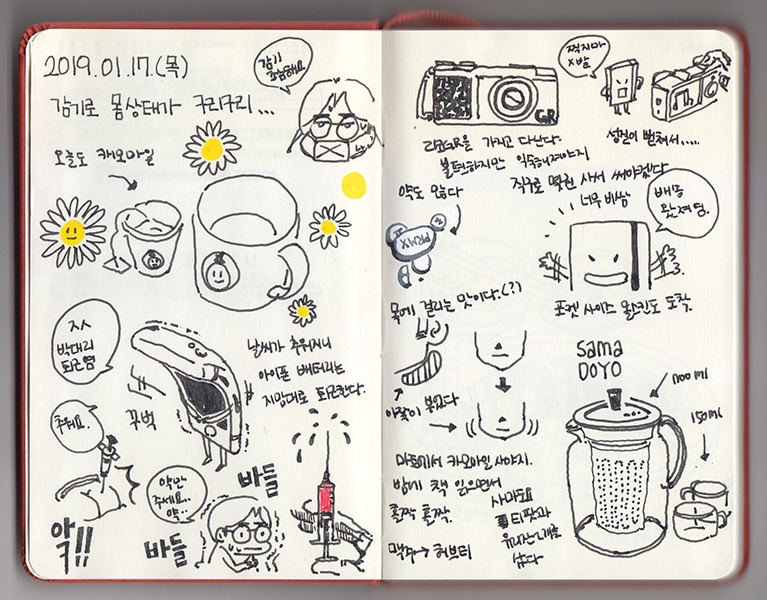 2019.01.17.(목)
감기로 몸상태가 구리구리...
감기
조심해요
오늘도 캐모마일
지사
박대리
퇴근염
꾸벅
날씨가 추워지니
아이폰 배터리는
지맘대로 퇴근한다.
추워요.
악!!
약만
주세요..
약..
바들
바들
찍지마
X발
GR
리코GR을 가지고 다닌다.
불편하지만 익숙해져야지
성질이 뻗쳐서....
직구로 몇권 사서 써야겠다
너무 비쌈
약도 왔다
배송
왔져염.
목에 걸리는 맛이다.(?)
포켓 사이즈 몰스킨도 도착.
SAMA
DOYO
1100ml
150ml
마트에서 카모마일 사야지.
밤에 책 읽으면서
홀짝 홀짝.
맥주→허브티
사마도요
티팟과
유리잔 2개를
샀다